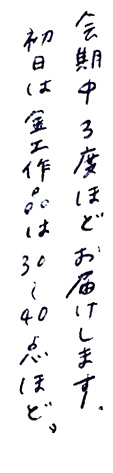 会期中3度ほどお届けします。
初日は金工作品は30〜40点ほど。